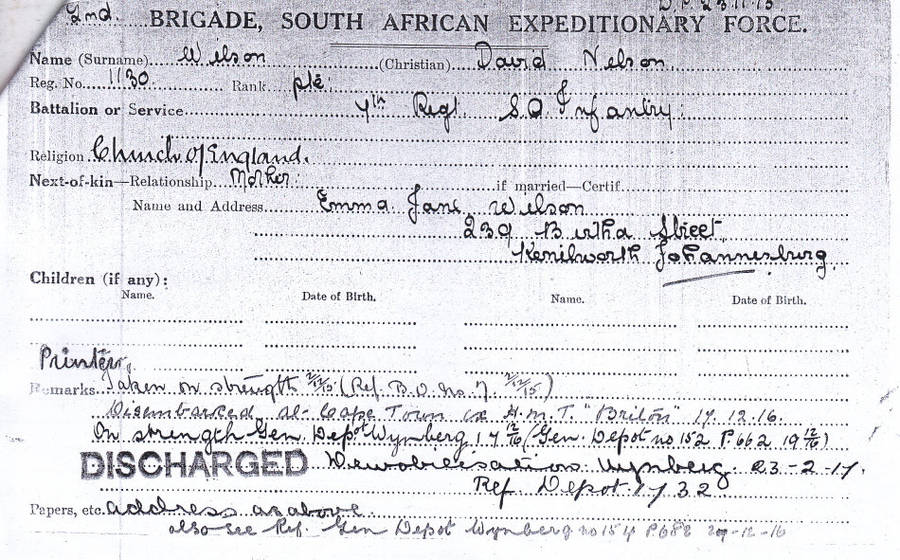 2nd. BRIGADE, SOUTH AFRICAN EXPEDITIONARY FORCE.
Name (Surname) Wilson (Christian) David Nelson.
Reg. No. 1130 Rank pte.
Battalion or Service 7th Regt. S.A. Infantry.
Religion Church of England.
Next-of-kin—Relationship Mother. if married—Certif.
Name and Address Emma Jane Wilson
239 Bertha Street,
Kenilworth Johannesburg.
Children (if any):
Name. Date of Birth. Name. Date of Birth.
Printer.
Remarks. Taken on strength 2/12/15 (Ref. B.O. No. 7 2/12/15)
Disembarked at Cape Town ex H.M.T. "Briton" 17.12.16.
On strength Gen. Depot Wynberg 17 12/16 (Gen. Depot no 152 P662 19 12/16)
DISCHARGED Demobilisation Wynberg. 23-2-17.
Ref Depot 1732
Papers, etc. address as above.
also see Ref. Gen Depot Wynberg no 154 P682 29-12-16